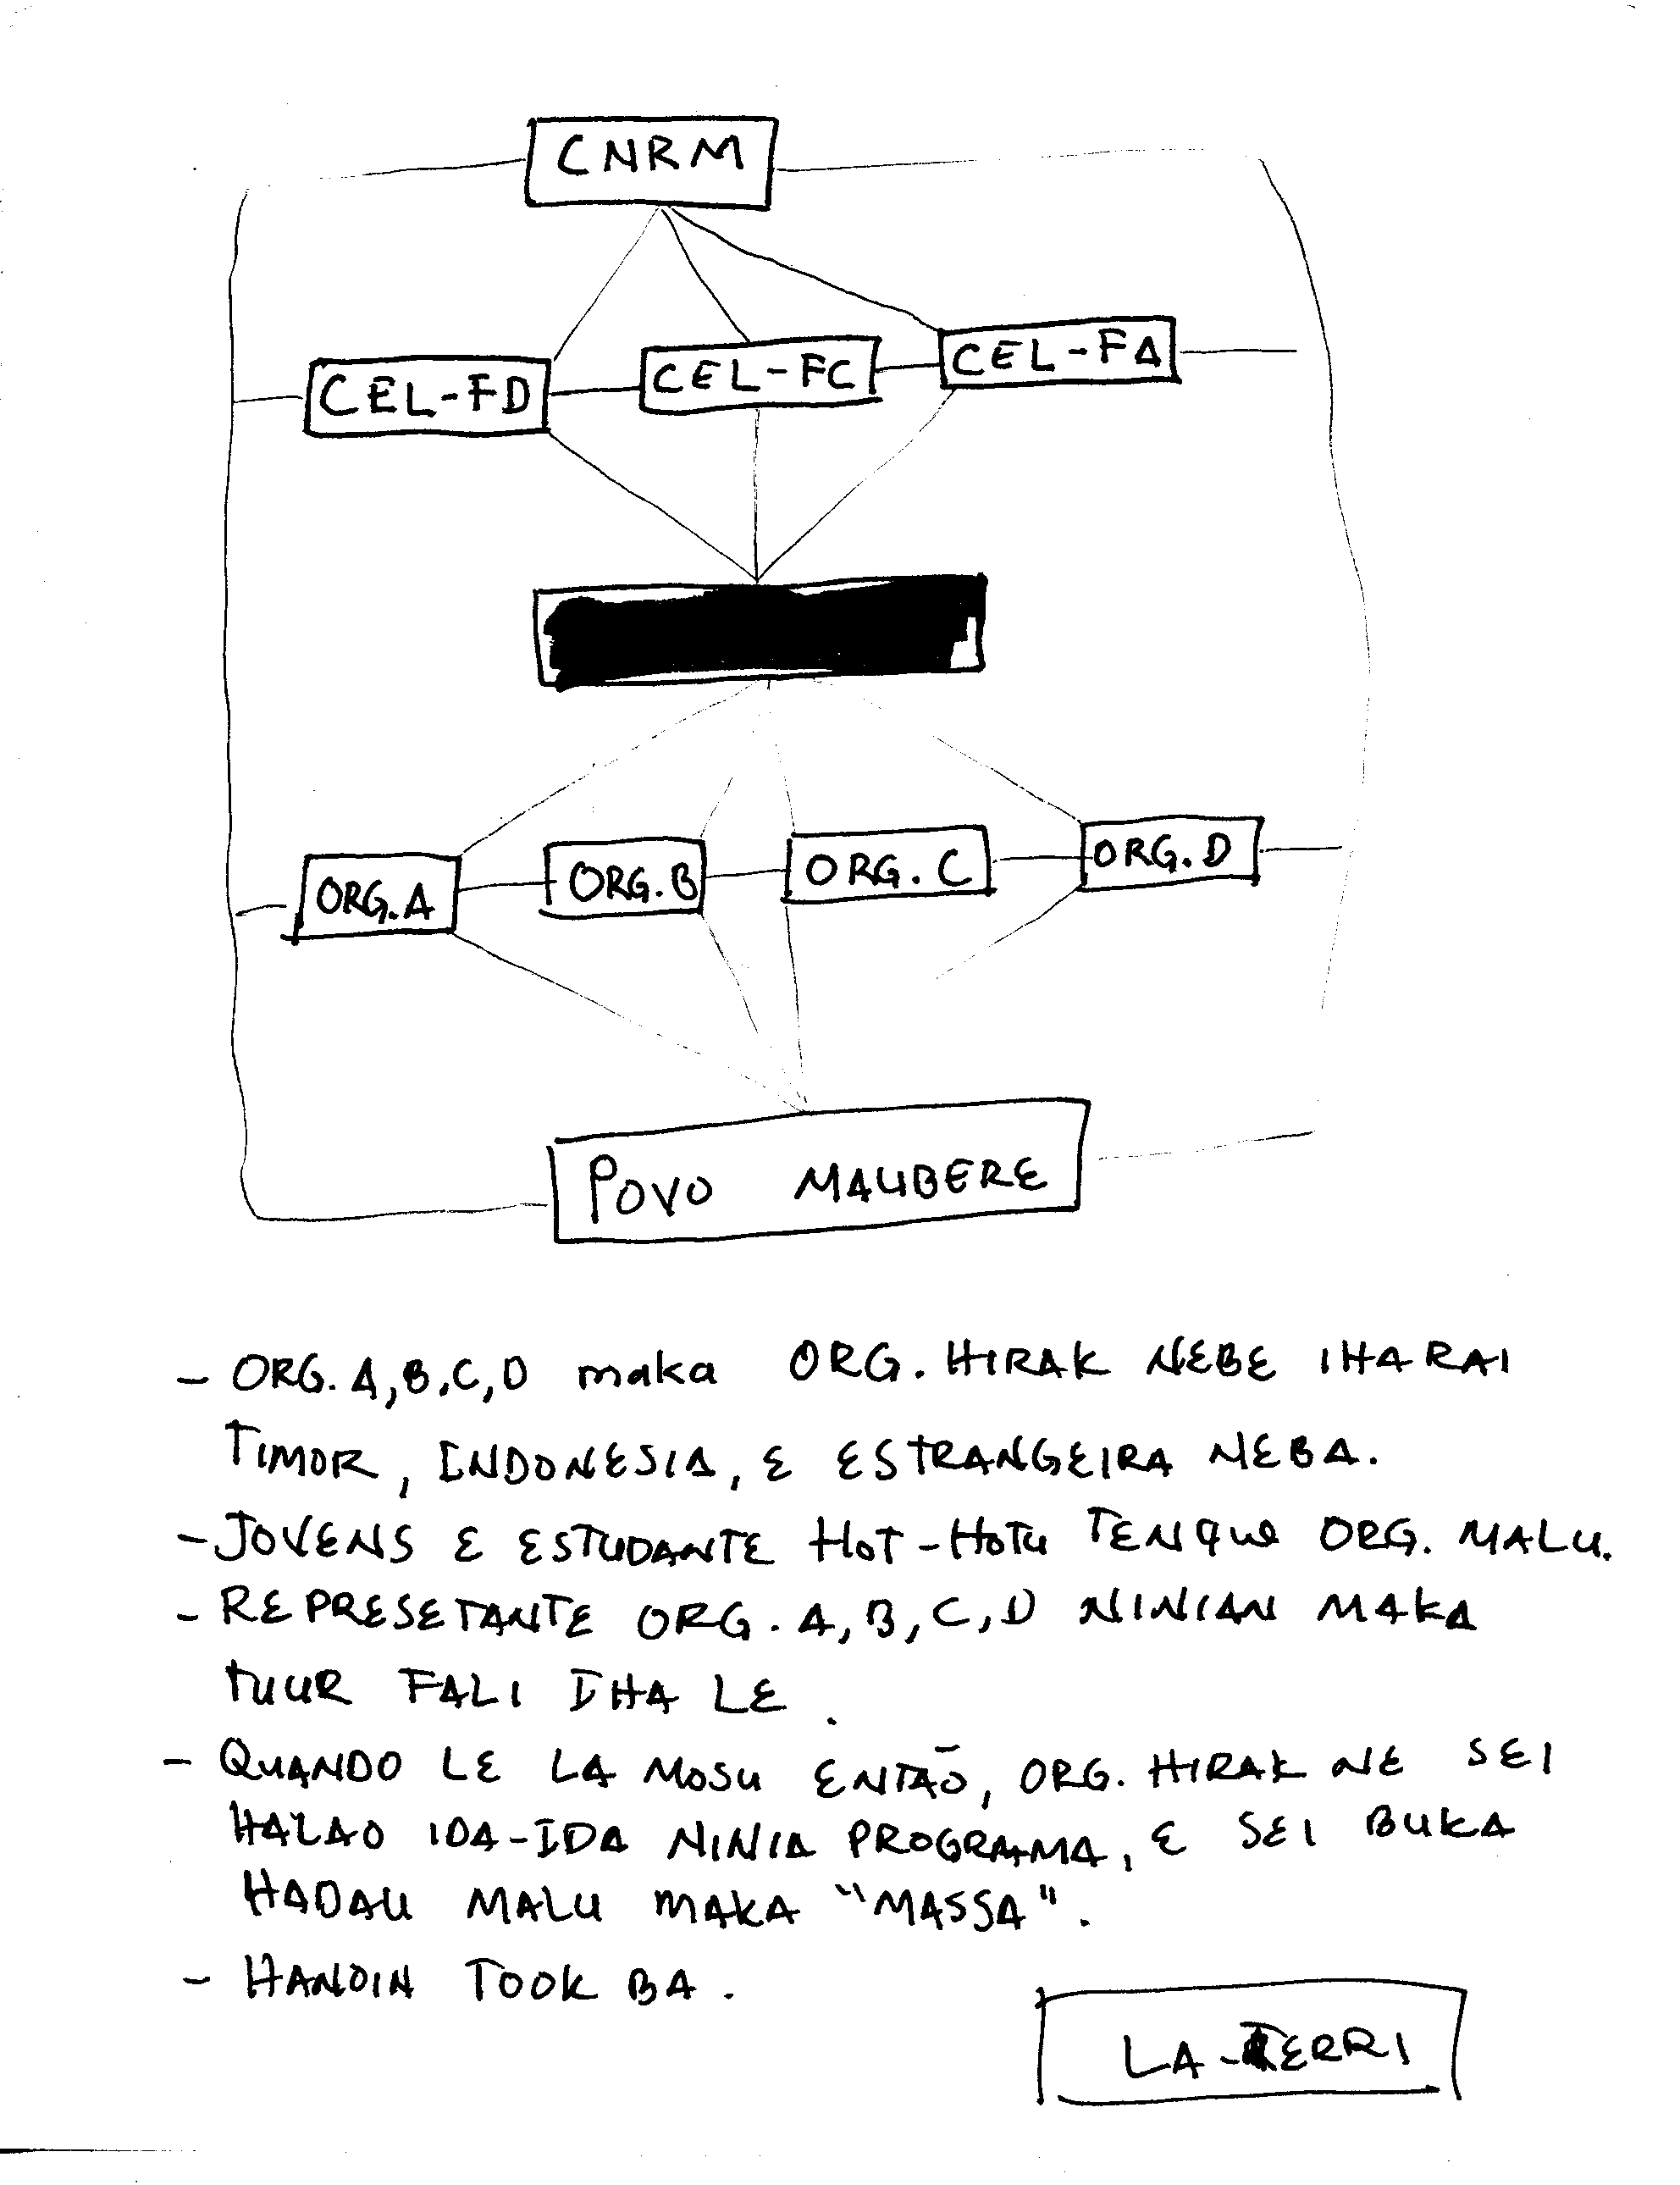 CNRM
CEL-FD
CEL-FC
CEL-FA
ORG.A
ORG.B
ORG. C
ORG.D
POVO MAUBERE
- ORG. A,B,C,D maka ORG. HIRAK NEBE IHA RAI
TIMOR, INDONESIA, E ESTRANGEIRA NEBA.
- JOVENS E ESTUDANTE HOT-HOTU TENQUE ORG. MALU.
- REPRESETANTE ORG. A,B,C,D NINIAN MAKA
TUUR FALI IHA LE.
- QUANDO LE LA MOSU ENTÃO, ORG. HIRAK NE SEI
HALAO IDA-IDA NINIA PROGRAMA, E SEI BUKA
HADAU MALU MAKA "MASSA".
- HANOIN TOOK BA.
LA-TERRI